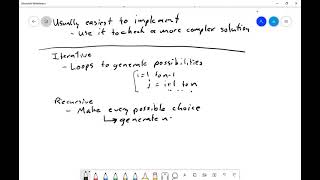 Usually easiest to implement
- use it to check a more complex solution
Iterative
- Loops to generate possibilities
i=1 to n-1
j = i+1 to n
Recursive
- Make every possible choice
↳ generate n